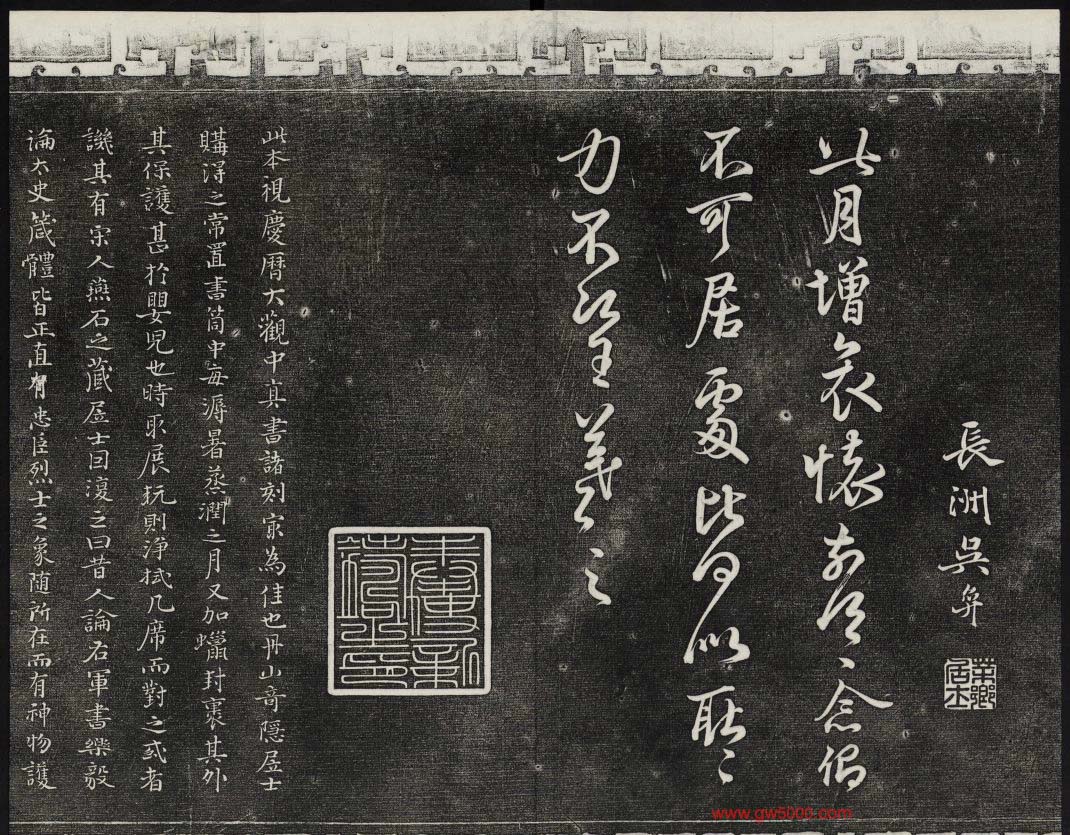 長洲吳弈
此月增哀懷前得〻念偈
不可居處比何似耿〻
力不次王羲之
此本視慶曆大觀中真書諸刻寂為佳也丹山奇隱居士
購淂之常置書筒中每溽暑蒸潤之月又加蠟封裹其外
其保護甚扵嬰兒也時取展玩則淨拭几席而對之或者
譏其有宋人燕石之藏居士因復之曰昔人論右軍書樂毅
論太史箴體皆正直有忠臣烈士之象隨所在而有神物護
www.gw5000.com